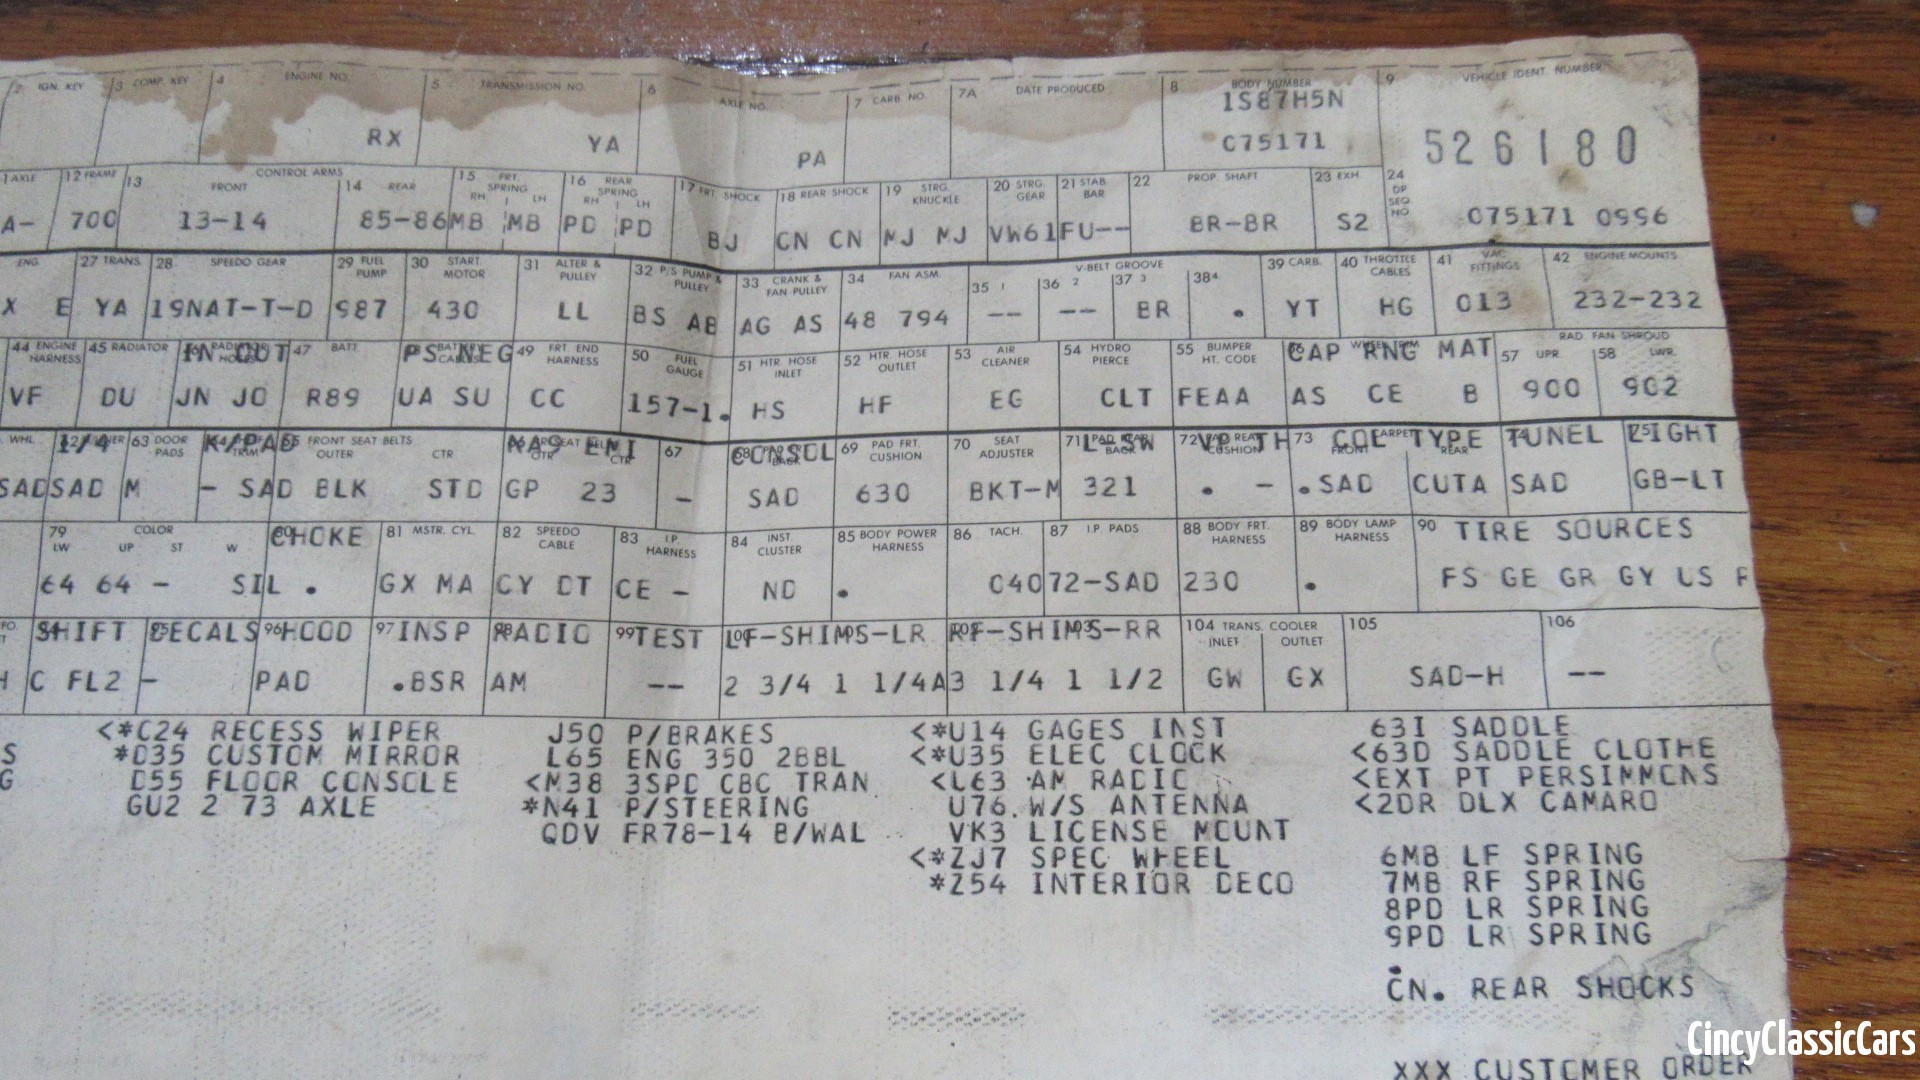 2 IGN. KEY 3 COMP. KEY 4 ENGINE NO. 5 TRANSMISSION NO. 6 AXLE NO. 7 CARB. NO. 7A DATE PRODUCED 8 BODY NUMBER 9 VEHICLE IDENT. NUMBER
RX YA PA 1S87H5N
C75171 526180
AXLE 12 FRAME 13 CONTROL ARMS FRONT 14 REAR 15 FRT. SPRING RH LH 16 REAR SPRING RH LH 17 FRT. SHOCK 18 REAR SHOCK 19 STRG. KNUCKLE 20 STRG. GEAR 21 STAB BAR 22 PROP. SHAFT 23 EXH. 24 DP SEQ NO
A- 70C 13-14 85-86 MB MB PD PD BJ CN CN MJ MJ VW61 FU-- BR-BR S2 C75171 0996
ENG. 27 TRANS. 28 SPEEDO GEAR 29 FUEL PUMP 30 START. MOTOR 31 ALTER & PULLEY 32 P/S PUMP & PULLEY 33 CRANK & FAN PULLEY 34 FAN ASM. V-BELT GROOVE 35 1 36 2 37 3 38 4 39 CARB. 40 THROTTLE CABLES 41 VAC FITTINGS 42 ENGINE MOUNTS
X E YA 19NAT-T-D 987 430 LL BS AB AG AS 48 794 -- -- BR . YT HG 013 232-232
44 ENGINE HARNESS 45 RADIATOR IN OUT 47 BATT. PS NEG 49 FRT. END HARNESS 50 FUEL GAUGE 51 HTR. HOSE INLET 52 HTR. HOSE OUTLET 53 AIR CLEANER 54 HYDRO PIERCE 55 BUMPER HT. CODE CAP RNG MAT RAD. FAN SHROUD 57 UPR. 58 LWR.
VF DU JN JO R89 UA SU CC 157-1. HS HF EG CLT FEAA AS CE B 900 902
WHL. 1/4 63 DOOR PADS K/PAD FRONT SEAT BELTS OUTER CTR 67 CONSOL 69 PAD FRT. CUSHION 70 SEAT ADJUSTER 71 L-SW 72 VP TH 73 COL TYPE TUNEL LIGHT
SAD SAD M - SAD BLK STD GP 23 - SAD 630 BKT-M 321 . - .SAD CUTA SAD GB-LT
79 COLOR LW UP ST W CHOKE 81 MSTR. CYL. 82 SPEEDO CABLE 83 I.P. HARNESS 84 INST. CLUSTER 85 BODY POWER HARNESS 86 TACH. 87 I.P. PADS 88 BODY FRT. HARNESS 89 BODY LAMP HARNESS 90 TIRE SOURCES
64 64 - SIL . GX MA CY DT CE - ND . C40 72-SAD 230 . FS GE GR GY US F
SHIFT DECALS 96 HOOD 97 INSP RADIO 99 TEST LF-SHIMS-LR RF-SHIMS-RR 104 TRANS. COOLER INLET OUTLET 105 106
H C FL2 - PAD .BSR AM -- 2 3/4 1 1/4A 3 1/4 1 1/2 GW GX SAD-H --
<*C24 RECESS WIPER J50 P/BRAKES <*U14 GAGES INST 63I SADDLE
S *D35 CUSTOM MIRROR L65 ENG 350 2BBL <*U35 ELEC CLOCK <63D SADDLE CLOTHE
G D55 FLOOR CONSOLE <M38 3SPD CBC TRAN <U63 AM RADIO <EXT PT PERSIMMONS
GU2 2 73 AXLE *N41 P/STEERING U76 W/S ANTENNA <2DR DLX CAMARO
QDV FR78-14 B/WAL VK3 LICENSE MOUNT
<*ZJ7 SPEC WHEEL 6MB LF SPRING
*Z54 INTERIOR DECO 7MB RF SPRING
8PD LR SPRING
9PD LR SPRING
CN. REAR SHOCKS
XXX CUSTOMER ORDER
CincyClassicCars